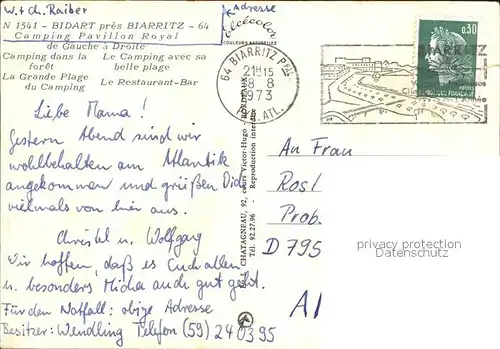 W. + Ch. Raiber
Adresse
N 1541 - BIDART près BIARRITZ - 64
Camping Pavillon Royal
de Gauche à Droite
Camping dans la forêt
Le Camping avec sa belle plage
La Grande Plage du Camping
Le Restaurant-Bar
COULEURS NATURELLES
Liebe Mama!
Gestern Abend sind wir
wohlbehalten am Atlantik
angekommen und grüßen Dich
vielmals von hier aus.
Christel u. Wolfgang
Wir hoffen, daß es Euch allen
u. besonders Micha auch gut geht.
Für den Notfall: obige Adresse
Besitzer: Wendling Telefon (59) 240395
CHATAGNEAU, 92, cours Victor-Hugo - BORDEAUX
Tél. 92.27.96 - Reproduction interdite
64 BIARRITZ Ppal
21H15
8 8
1973
ATL.
BIARRITZ
0,30
An Frau
Rosl
Prob.
D 795
A1
privacy protection
Datenschutz